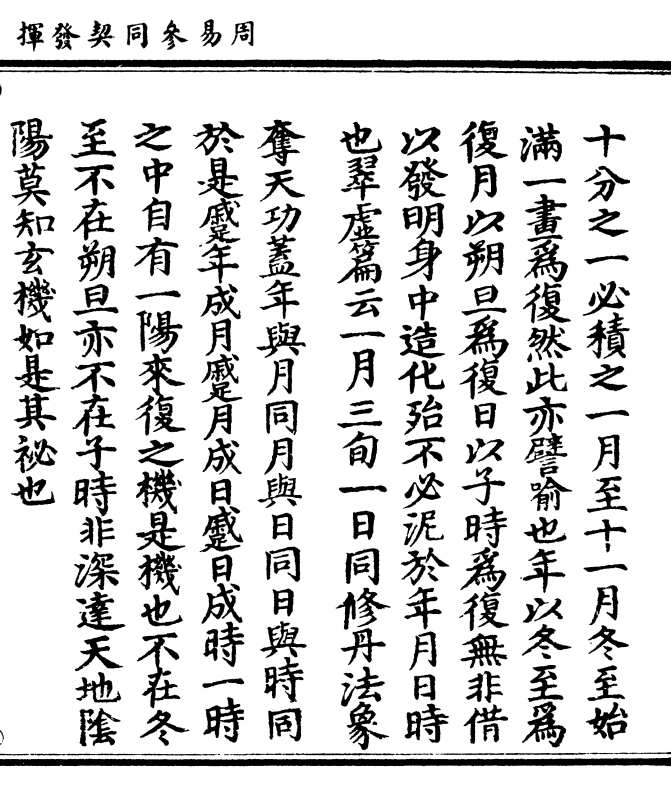 周易參同契發揮
十分之一必積之一月至十一月冬至始
滿一畫爲復然此亦譬喻也年以冬至爲
復月以朔旦爲復日以子時爲復無非借
以發明身中造化殆不必泥於年月日時
也翠虛篇云一月三旬一日同修丹法象
奪天功蓋年與月同月與日同日與時同
於是蹙年成月蹙月成日蹙日成時一時
之中自有一陽來復之機是機也不在冬
至不在朔旦亦不在子時非深達天地陰
陽莫知玄機如是其祕也